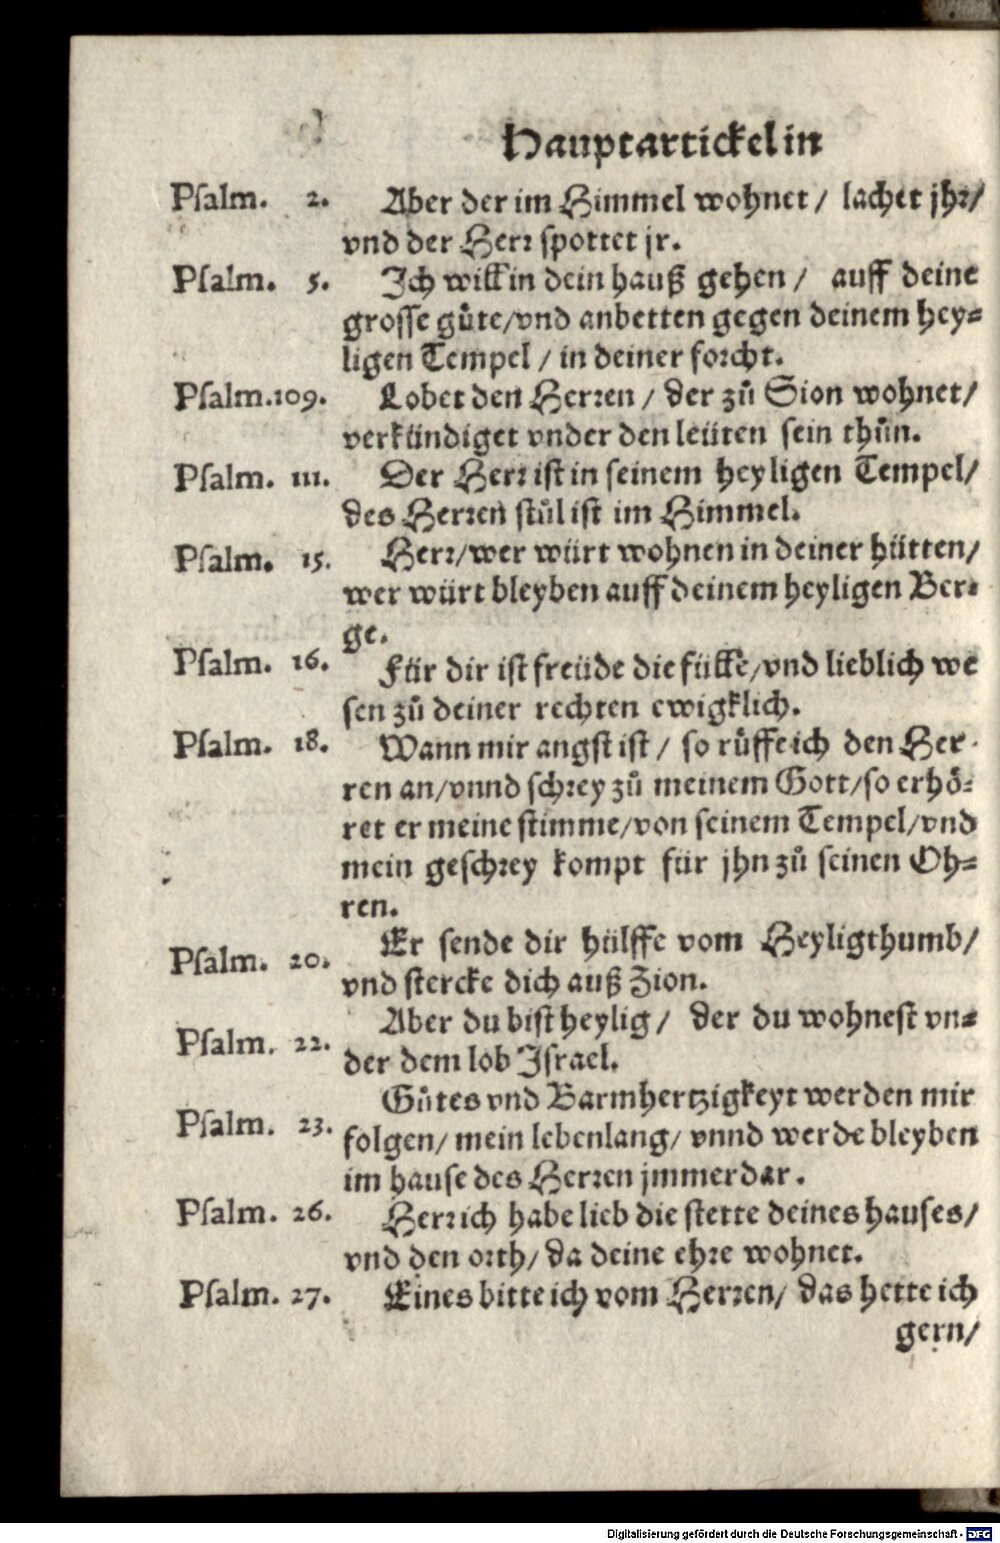 Hauptartickel in
Psalm. 2. Aber der im Himmel wohnet / lachet jhr/
vnd der Herr spottet jr.
Psalm. 5. Ich will in dein hauß gehen / auff deine
grosse güte/vnd anbetten gegen deinem hey=
ligen Tempel / in deiner forcht.
Psalm.109. Lobet den Herren / der zů Sion wohnet/
verkündiget vnder den leüten sein thůn.
Psalm. 111. Der Herr ist in seinem heyligen Tempel/
des Herren stůl ist im Himmel.
Psalm. 15. Herr/wer würt wohnen in deiner hütten/
wer würt bleyben auff deinem heyligen Ber=
ge.
Psalm. 16. Für dir ist freüde die fülle/vnd lieblich we
sen zů deiner rechten ewigklich.
Psalm. 18. Wann mir angst ist / so růffe ich den Her-
ren an/vnnd schrey zů meinem Gott/so erhö=
ret er meine stimme/von seinem Tempel/vnd
mein geschrey kompt für jhn zů seinen Oh=
ren.
Psalm. 20. Er sende dir hülffe vom Heyligthumb/
vnd stercke dich auß Zion.
Psalm. 22. Aber du bist heylig / der du wohnest vn=
der dem lob Israel.
Psalm. 23. Gůtes vnd Barmhertzigkeyt werden mir
folgen/ mein lebenlang/ vnnd werde bleyben
im hause des Herren jmmerdar.
Psalm. 26. Herr ich habe lieb die stette deines hauses/
vnd den orth/ da deine ehre wohnet.
Psalm. 27. Eines bitte ich vom Herren/ das hette ich
gern/
Digitalisierung gefördert durch die Deutsche Forschungsgemeinschaft - DFG